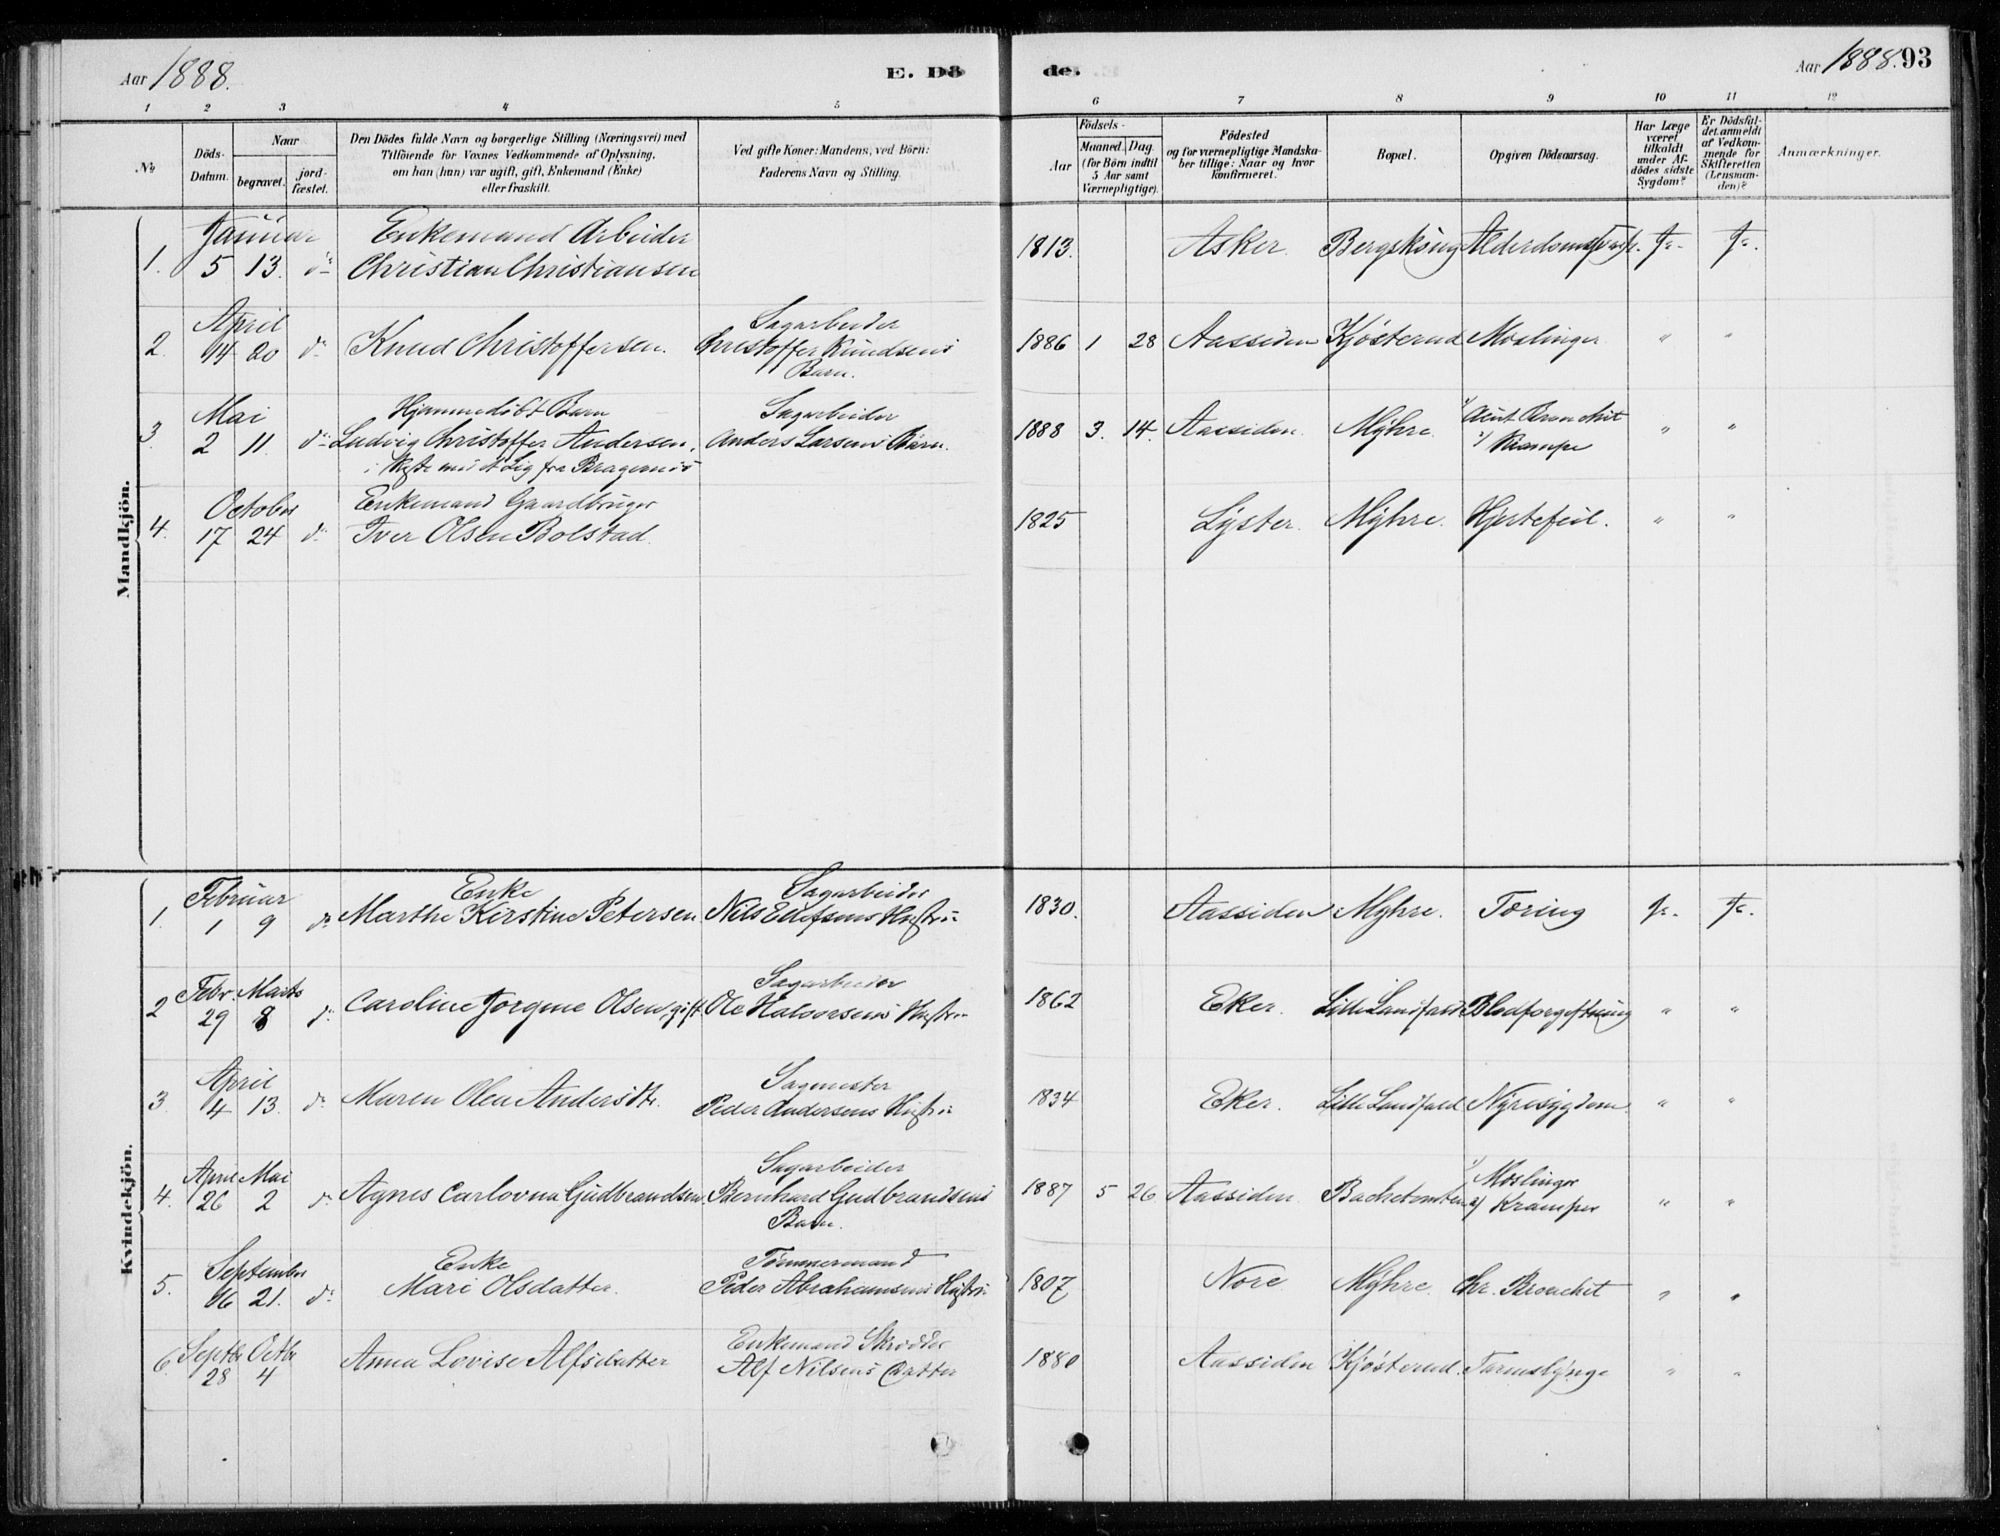 Aar 1888.
E. Dö
de.
Aar 1888. 93
1 2 3 4 5 6 7 8 9 10 11 12
No
Döds-Datum.
Naar
begravet.
jord-fæstet.
Den Dödes fulde Navn og borgerlige Stilling (Næringsvei) med
Tilföiende for Voxnes Vedkommende af Oplysning,
om han (hun) var ugift, gift, Enkemand (Enke)
eller fraskilt.
Ved gifte Koner: Mandens, ved Börn:
Faderens Navn og Stilling.
Födsels-
Aar
Maaned. Dag.
(for Börn indtil
5 Aar samt
Værnepligtige).
Födested
og for værnepligtige Mandska-
ber tillige: Naar og hvor
konfirmeret.
Bopæl.
Opgiven Dödsaarsag.
Har Læge
været
tilkaldt
under Af-
dödes sidste
Sygdom?
Er Dödsfal-
det anmeldt
af Vedkom-
mende for
Skifteretten
(Lensman-
den)?
Anmærkninger.
Mandkjön.
Januar Enkemand Arbeider
1. 5 13. do Christian Christiansen 1813. Asker. Bergskoug Ja. Ja.
April Sagarbeider
2. 14 20 do Knud Christoffersen. Christoffer Knudsens 1886 1 28 Aassiden Kjösterud Mæslinger " "
Barn.
Mai Hjemmedöbt Barn Sagarbeider 1) Acut Bronchit
3 2 11. do Ludvig Christoffer Andersen, Anders Larsens Barn. 1888 3. 14. Aassiden. Myhre. 2) Krampe " "
i Kiste med et Lig fra Bragernes
October Enkemand Gaardbruger
4. 17 24 do Iver Olsen Bolstad. 1825 Lyster. Myhre. Hjertefeil. " "
Kvindekjön.
Februar Enke Sagarbeider
1. 1 9 do Marthe Kirstine Petersen Nils Ellefsens Hustru 1830. Aassiden Myhre. Tæring Ja. Ja.
Febr. Marts Sagarbeider
2 29 8 do Caroline Jorgine Olsen, gift. Ole Halvorsens Hustru 1862 Eker. Lille Landfald Blodforgiftning " "
April Sagmester
3. 4 13. do Maren Olea Andersdtr. Peder Andersens Hustru 1834 Eker. Lille Landfald Nyresygdom " "
April Mai Sagarbeider 1) Mæslinger
4. 26 2 do Agnes Carlovna Gudbrandsen. Bernhard Gudbrandsens 1887 5 26. Aassiden. Bachetomten 2) Kramper " "
Barn.
September Enke Tømmermand
5. 16 21. do Mari Olsdatter. Peder Abrahamsens Hustru 1807 Nore Myhre. Chr. Bronchit " "
Septbr Octbr Enkemand Skrædder
6. 28 4 Anna Lovise Alfsdatter Alf Nilsens Datter 1880 Aassiden Kjösterud. Tarmslynge " "